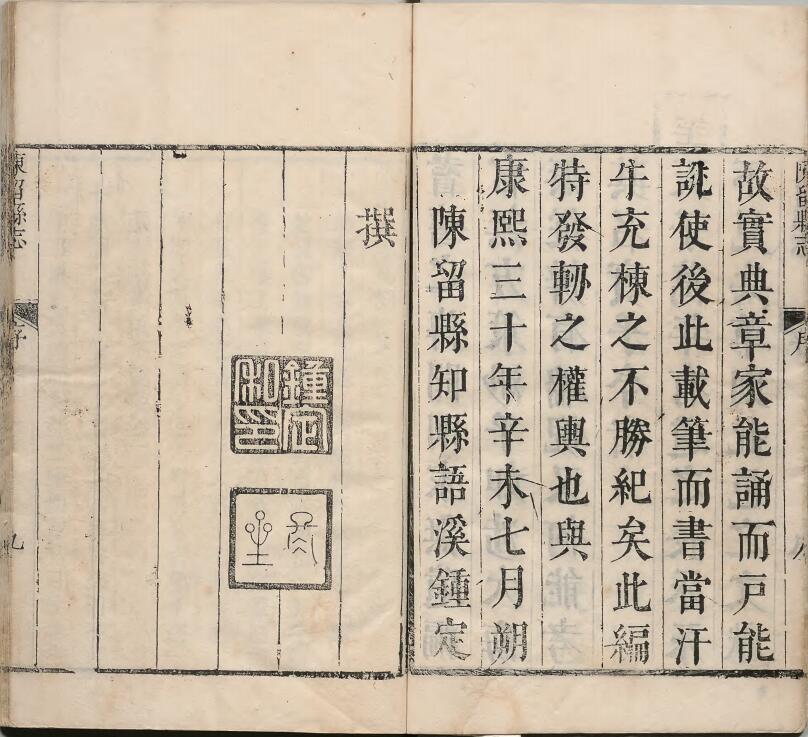 陳留縣志 序 八
故實典章家能誦而戸能
說使後此載筆而書當汗
牛充棟之不勝紀矣此編
特發軔之權輿也與
康熙三十年辛未七月朔
陳留縣知縣語溪鍾定
撰
陳留縣志 序 九